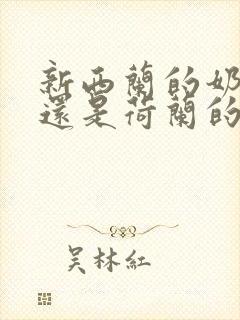 新西蘭的奶
還是荷蘭的
吴林紅